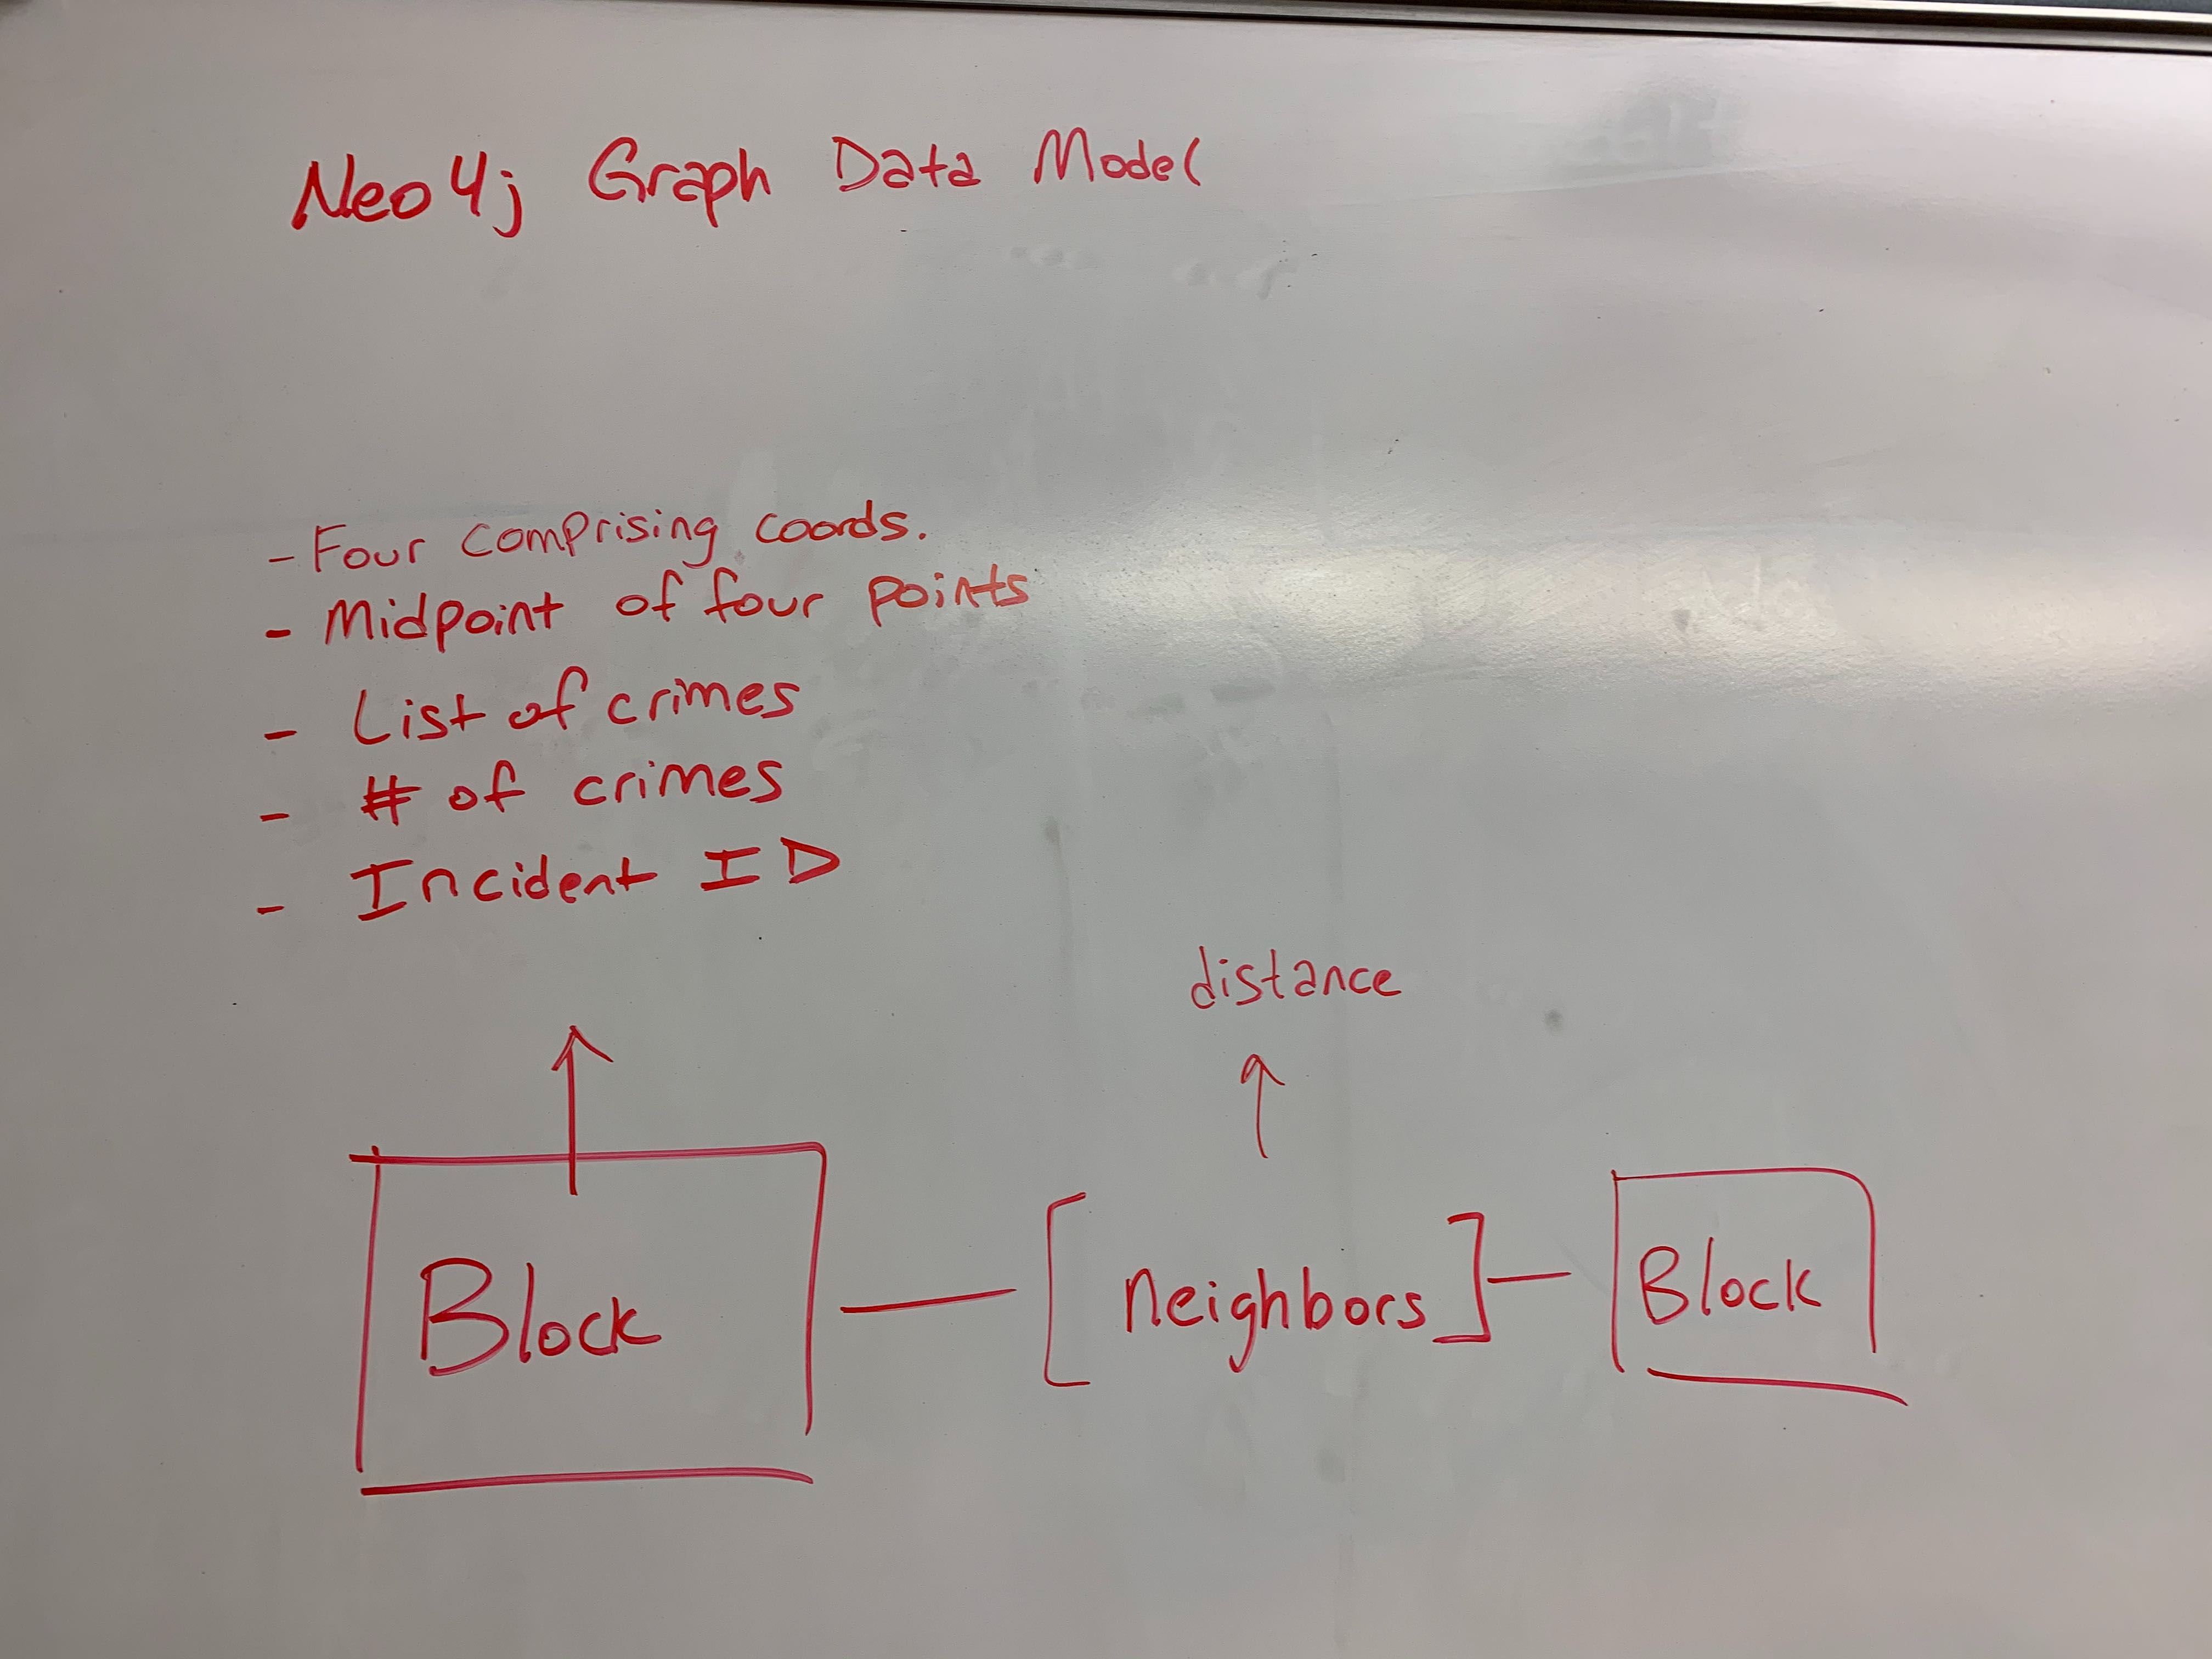 Neo4j Graph Data Model
- Four comprising coords.
- Midpoint of four points
- List of crimes
- # of crimes
- Incident ID
distance
Block
[neighbors]
Block